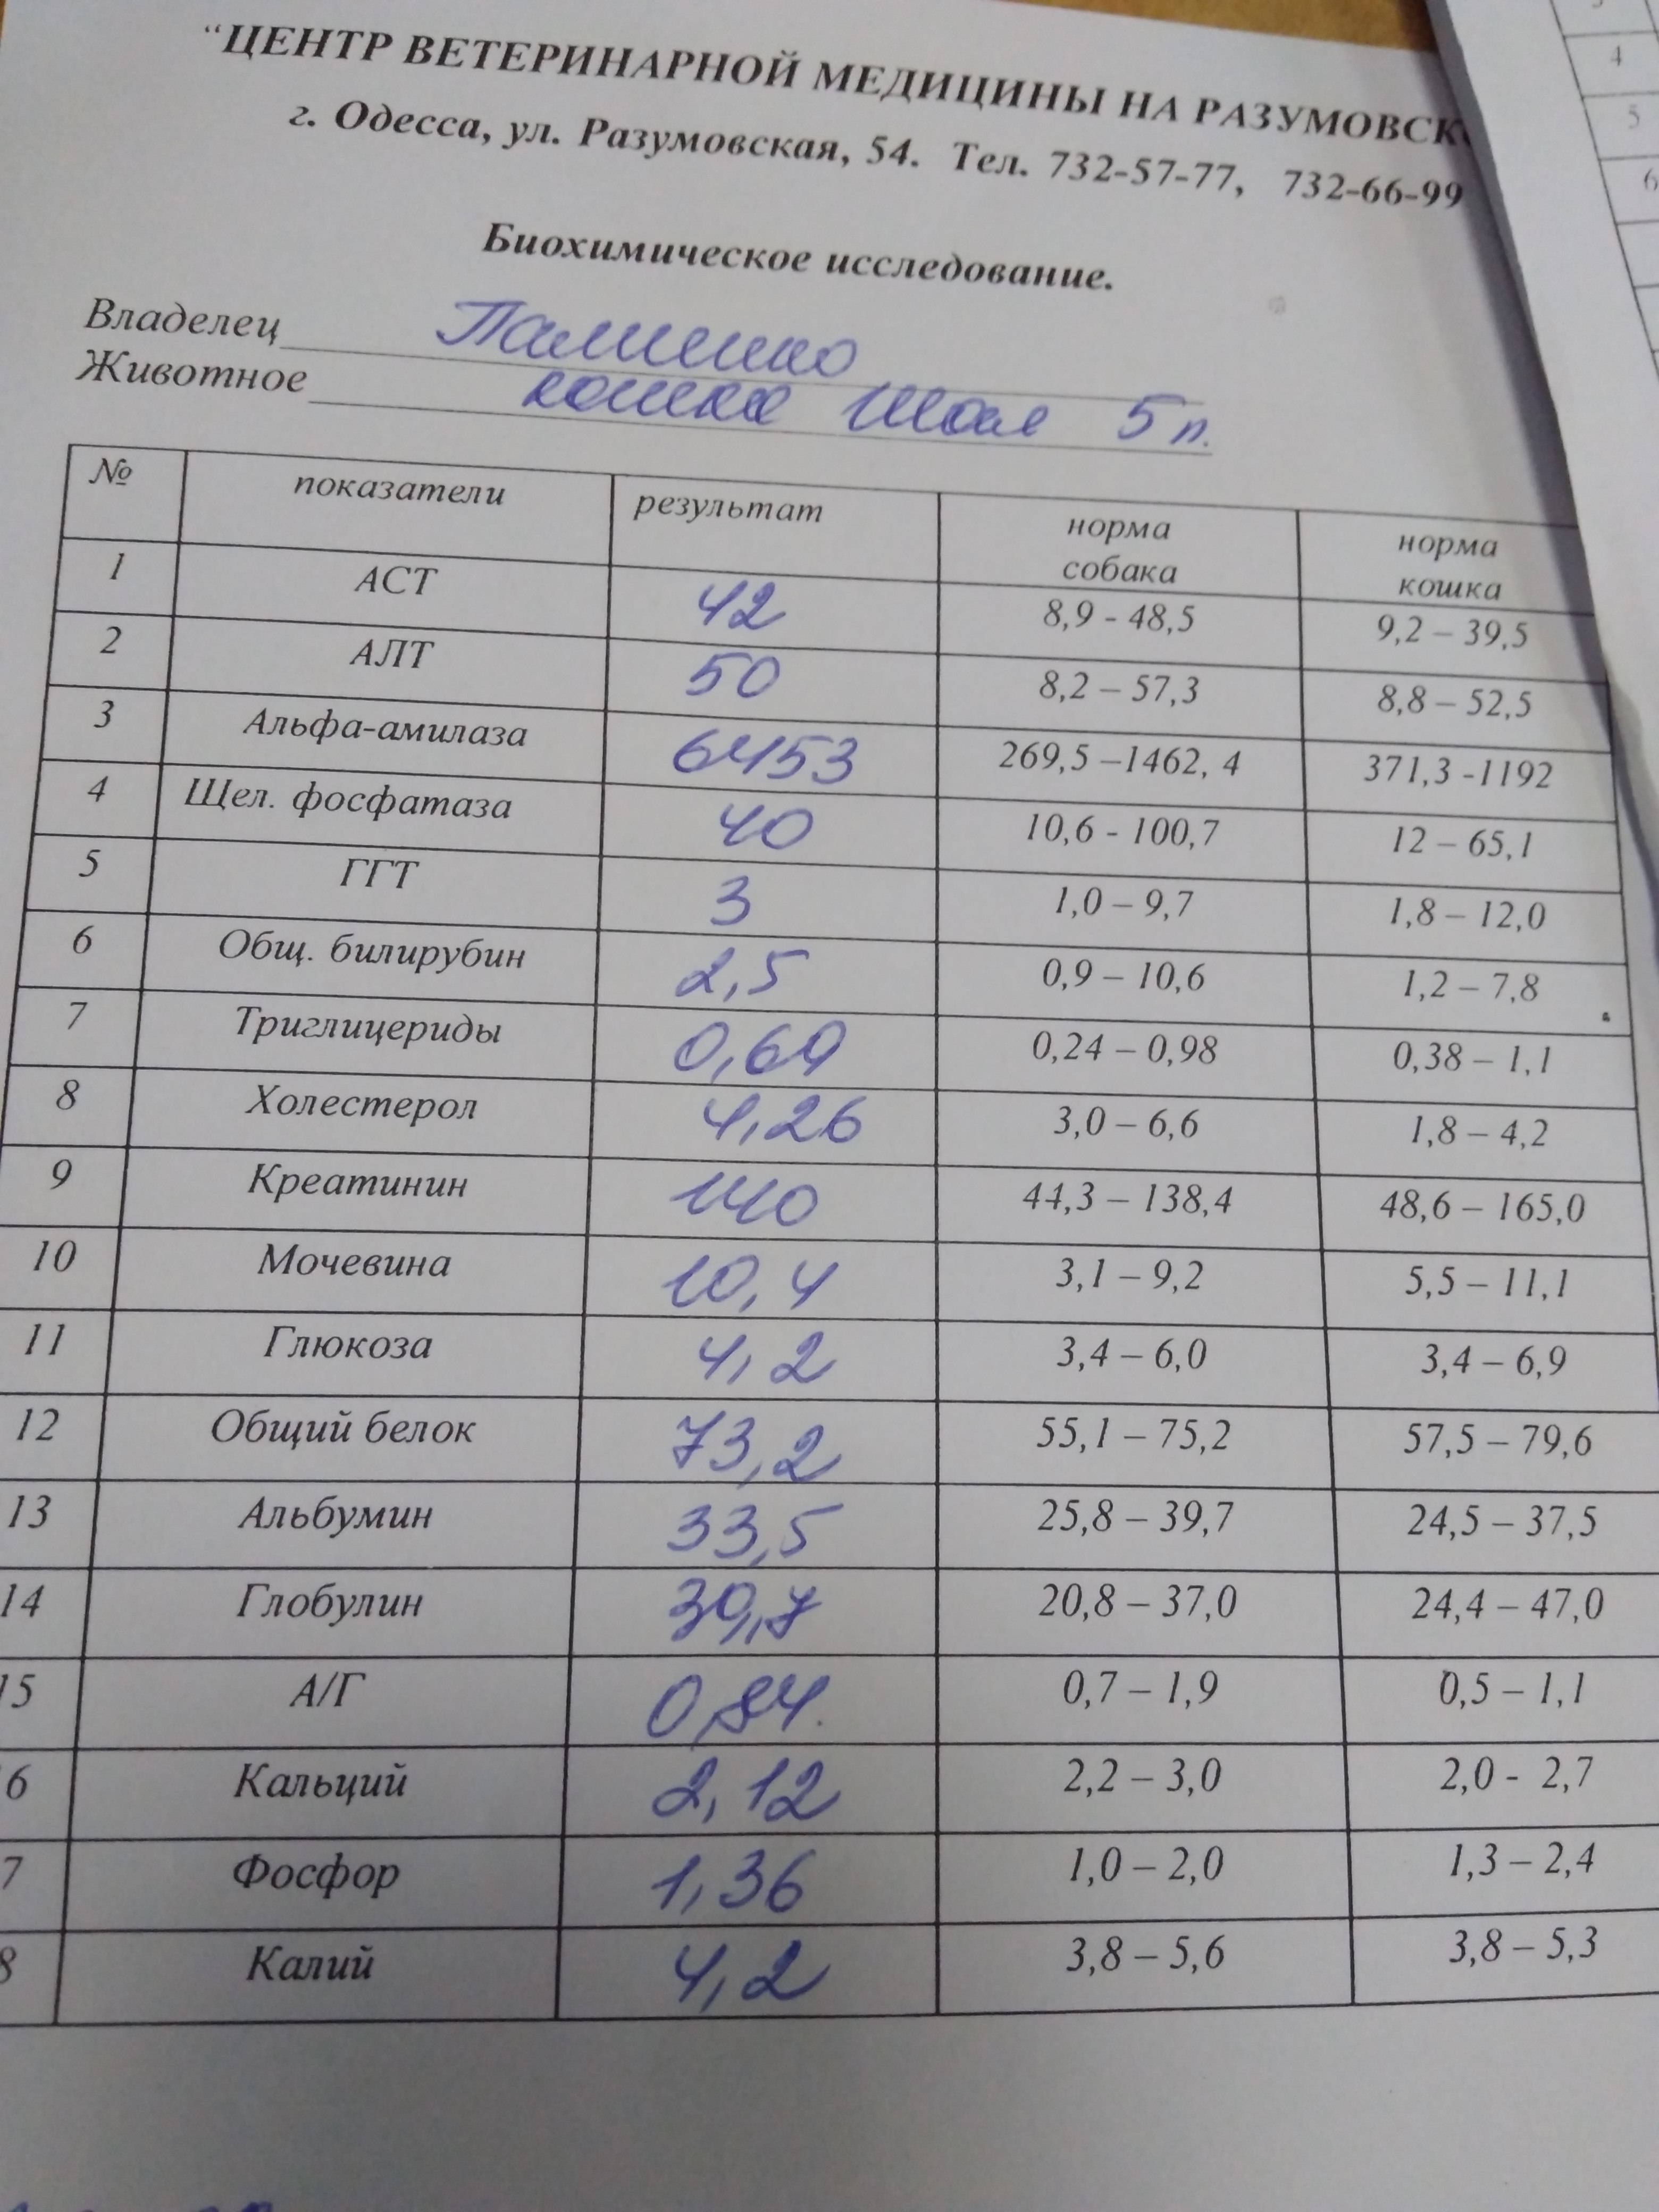 “ЦЕНТР ВЕТЕРИНАРНОЙ МЕДИЦИНЫ НА РАЗУМОВСК
г. Одесса, ул. Разумовская, 54. Тел. 732-57-77, 732-66-99
Биохимическое исследование.
Владелец
Животное кошка 5 л.
№ показатели результат норма собака норма кошка
1 АСТ 42 8,9 - 48,5 9,2 – 39,5
2 АЛТ 50 8,2 – 57,3 8,8 – 52,5
3 Альфа-амилаза 6453 269,5 –1462, 4 371,3 -1192
4 Щел. фосфатаза 40 10,6 - 100,7 12 – 65,1
5 ГГТ 3 1,0 – 9,7 1,8 – 12,0
6 Общ. билирубин 2,5 0,9 – 10,6 1,2 – 7,8
7 Триглицериды 0,69 0,24 – 0,98 0,38 – 1,1
8 Холестерол 4,26 3,0 – 6,6 1,8 – 4,2
9 Креатинин 140 44,3 – 138,4 48,6 – 165,0
10 Мочевина 10,4 3,1 – 9,2 5,5 – 11,1
11 Глюкоза 4,2 3,4 – 6,0 3,4 – 6,9
12 Общий белок 73,2 55,1 – 75,2 57,5 – 79,6
13 Альбумин 33,5 25,8 – 39,7 24,5 – 37,5
14 Глобулин 39,7 20,8 – 37,0 24,4 – 47,0
15 А/Г 0,84. 0,7 – 1,9 0,5 – 1,1
6 Кальций 2,12 2,2 – 3,0 2,0 - 2,7
7 Фосфор 1,36 1,0 – 2,0 1,3 – 2,4
8 Калий 4,2 3,8 – 5,6 3,8 – 5,3
4
5
6